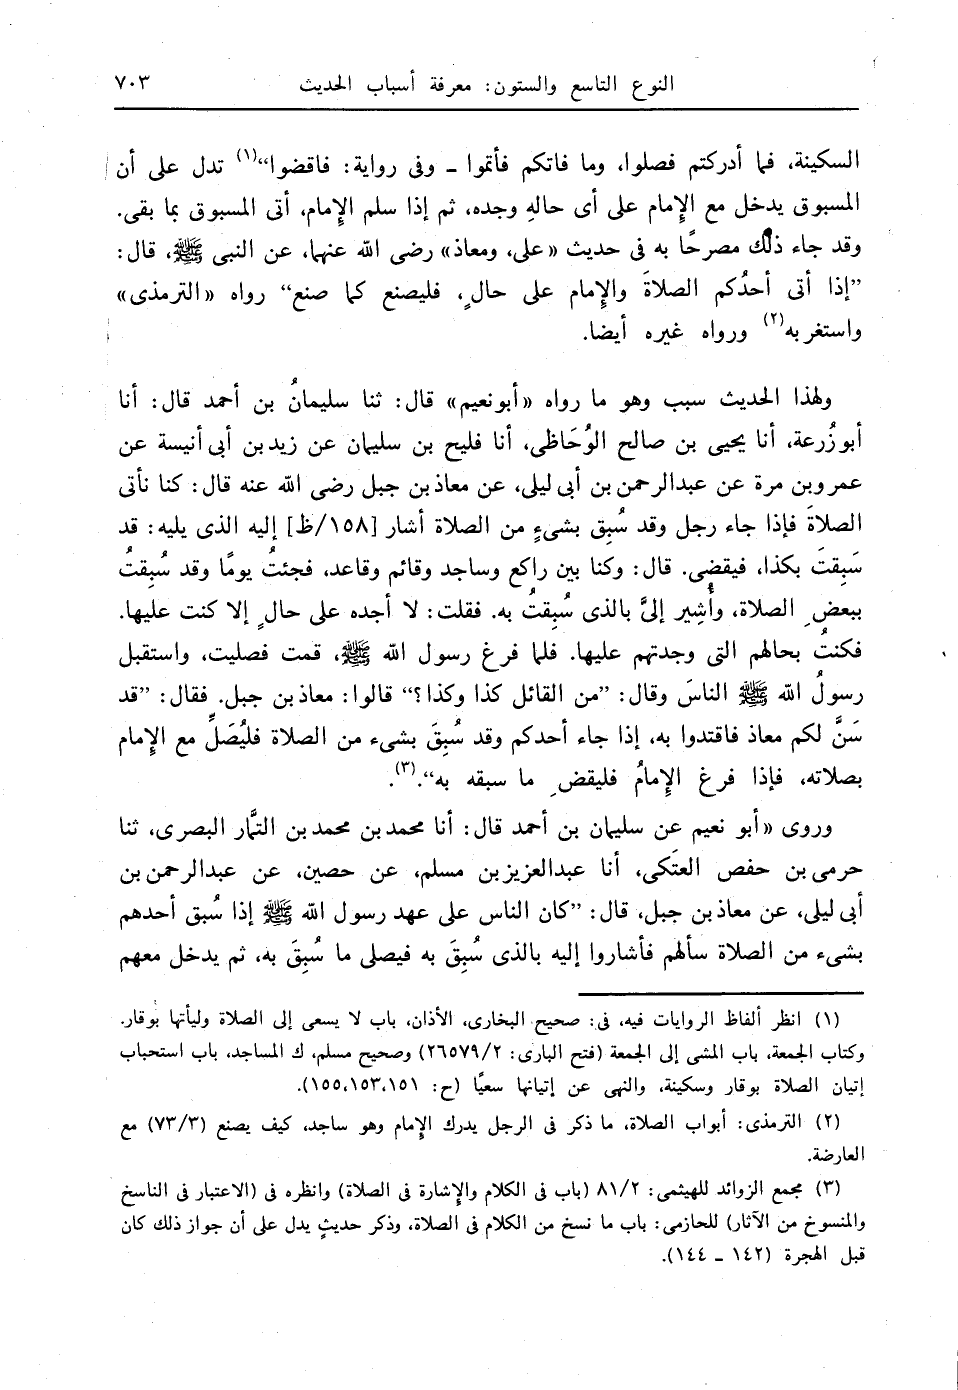 النوع التاسع والستون: معرفة أسباب الحديث ٧٠٣
السكينة، فما أدركتم فصلوا، وما فاتكم فأتموا ـ وفى رواية: فاقضوا“(١) تدل على أن
المسبوق يدخل مع الإمام على أى حالهِ وجده، ثم إذا سلم الإمام، أتى المسبوق بما بقى.
وقد جاء ذلك مصرحًا به فى حديث «على، ومعاذ» رضى الله عنهما، عن النبى ﷺ، قال:
”إذا أتى أحدُكم الصلاةَ والإمام على حالٍ، فليصنع كما صنع“ رواه «الترمذى»
واستغربه(٢) ورواه غيره أيضا.
ولهذا الحديث سبب وهو ما رواه «أبونعيم» قال: ثنا سليمانُ بن أحمد قال: أنا
أبوزُرعة، أنا يحيى بن صالح الوُحَاظى، أنا فليح بن سليمان عن زيدبن أبى أنيسة عن
عمروبن مرة عن عبدالرحمن بن أبى ليلى، عن معاذبن جبل رضى الله عنه قال: كنا نأتى
الصلاةَ فإذا جاء رجل وقد سُبِق بشىءٍ من الصلاة أشار [١٥٨/ظ] إليه الذى يليه: قد
سَبِقتَ بكذا، فيقضى. قال: وكنا بين راكع وساجد وقائم وقاعد، فجئتُ يومًا وقد سُبِقتُ
ببعضِ الصلاة، وأُشِير إلىَّ بالذى سُبِقتُ به. فقلت: لا أجده على حالٍ إلا كنت عليها.
فكنتُ بحالهم التى وجدتهم عليها. فلما فرغ رسول الله ﷺ، قمت فصليت، واستقبل
رسولُ الله ﷺ الناسَ وقال: ”من القائل كذا وكذا؟“ قالوا: معاذبن جبل. فقال: ”قد
سَنَّ لكم معاذ فاقتدوا به، إذا جاء أحدكم وقد سُبِقَ بشىء من الصلاة فليُصَلِّ مع الإمام
بصلاته، فإذا فرغ الإمامُ فليقضِ ما سبقه به“.(٣).
وروى «أبو نعيم عن سليمان بن أحمد قال: أنا محمدبن محمدبن التمَّار البصرى، ثنا
حرمى بن حفص العتَكى، أنا عبدالعزيزبن مسلم، عن حصين، عن عبدالرحمن بن
أبى ليلى، عن معاذبن جبل، قال: ”كان الناس على عهد رسول الله ﷺ إذا سُبق أحدهم
بشىء من الصلاة سألهم فأشاروا إليه بالذى سُبِقَ به فيصلى ما سُبِقَ به، ثم يدخل معهم
(١) انظر ألفاظ الروايات فيه، فى: صحيح البخارى، الأذان، باب لا يسعى إلى الصلاة وليأتها بوقار.
وكتاب الجمعة، باب المشى إلى الجمعة (فتح البارى: ٢٦٥٧٩/٢) وصحيح مسلم، ك المساجد، باب استحباب
إتيان الصلاة بوقار وسكينة، والنهى عن إتيانها سعيًا (ح: ١٥٥،١٥٣،١٥١).
(٢) الترمذى: أبواب الصلاة، ما ذكر فى الرجل يدرك الإمام وهو ساجد، كيف يصنع (٧٣/٣) مع
العارضة.
(٣) مجمع الزوائد للهيثمى: ٨١/٢ (باب فى الكلام والإشارة فى الصلاة) وانظره فى (الاعتبار فى الناسخ
والمنسوخ من الآثار) للحازمى: باب ما نسخ من الكلام فى الصلاة، وذكر حديثٍ يدل على أن جواز ذلك كان
قبل الهجرة (١٤٢ ـ ١٤٤).